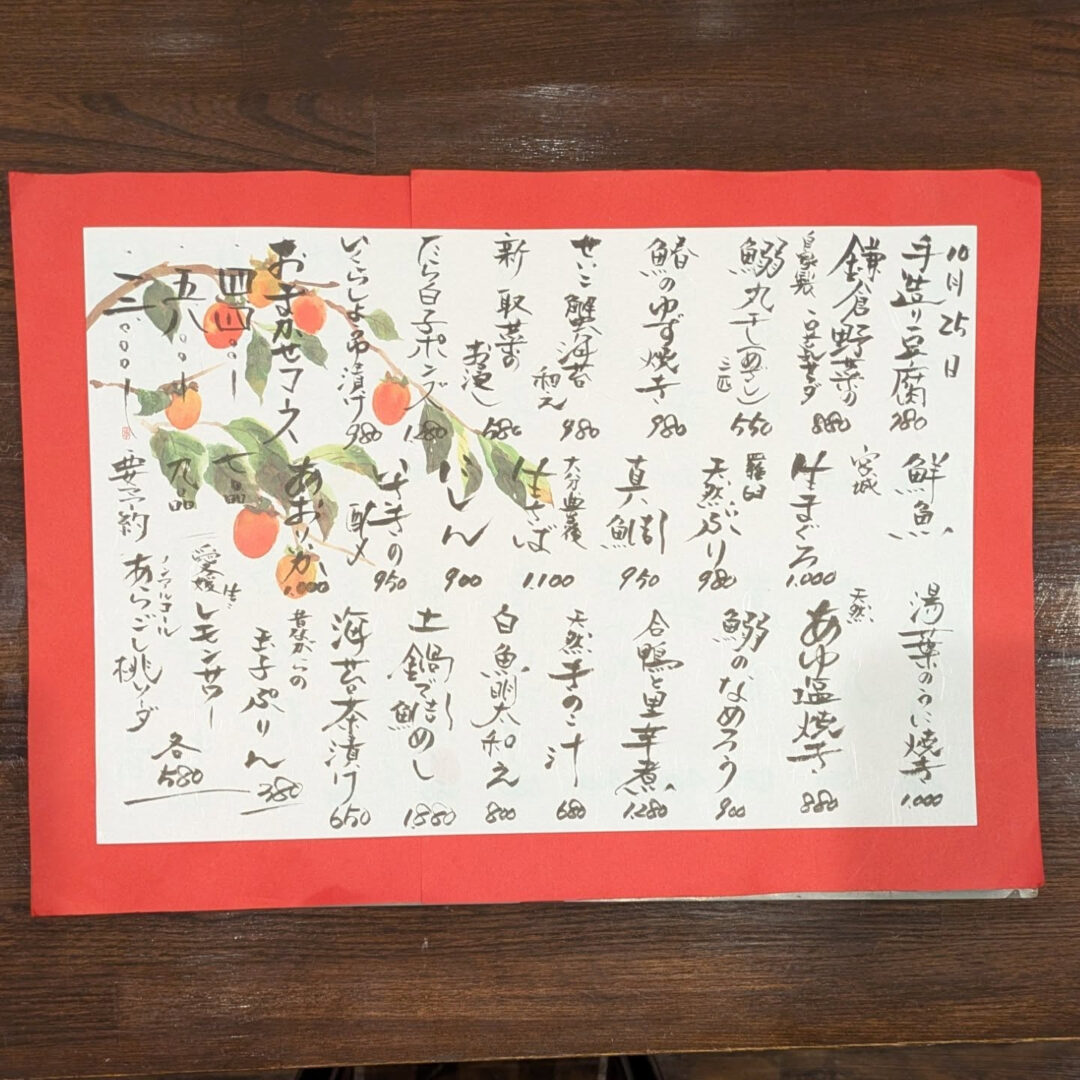 10月25日
手造り豆腐 380
鎌倉野菜の
自家製 豆乳サラダ 880
鰯丸干し(めざし) 三匹 550
鰆のゆず焼き 980
せいこ蟹海苔和え 980
新取菜のお浸し 580
たら白子ポンズ 1,280
いくらしょう油漬け 980
おまかせコース
四四〇〇ー 七品
五八〇〇ー 九品
三〇〇〇ー 要予約
鮮魚
宮城 生まぐろ 1,000
羅臼 天然ぶり 980
真鯛 950
大分豊後 生さば 1,100
900
いさきの 酢〆 950
あおりいか 1,000
湯葉のうに焼き 1,000
天然 あゆ塩焼き 880
鰯のなめろう 900
合鴨と里芋煮 1,280
天然きのこ汁 680
白魚明太和え 800
土鍋で鯛めし 1,880
海苔茶漬け 650
昔ながらの
玉子ぷりん 380
愛媛 生レモンサワー
ノンアルコール
あらごし桃ソーダ
各580